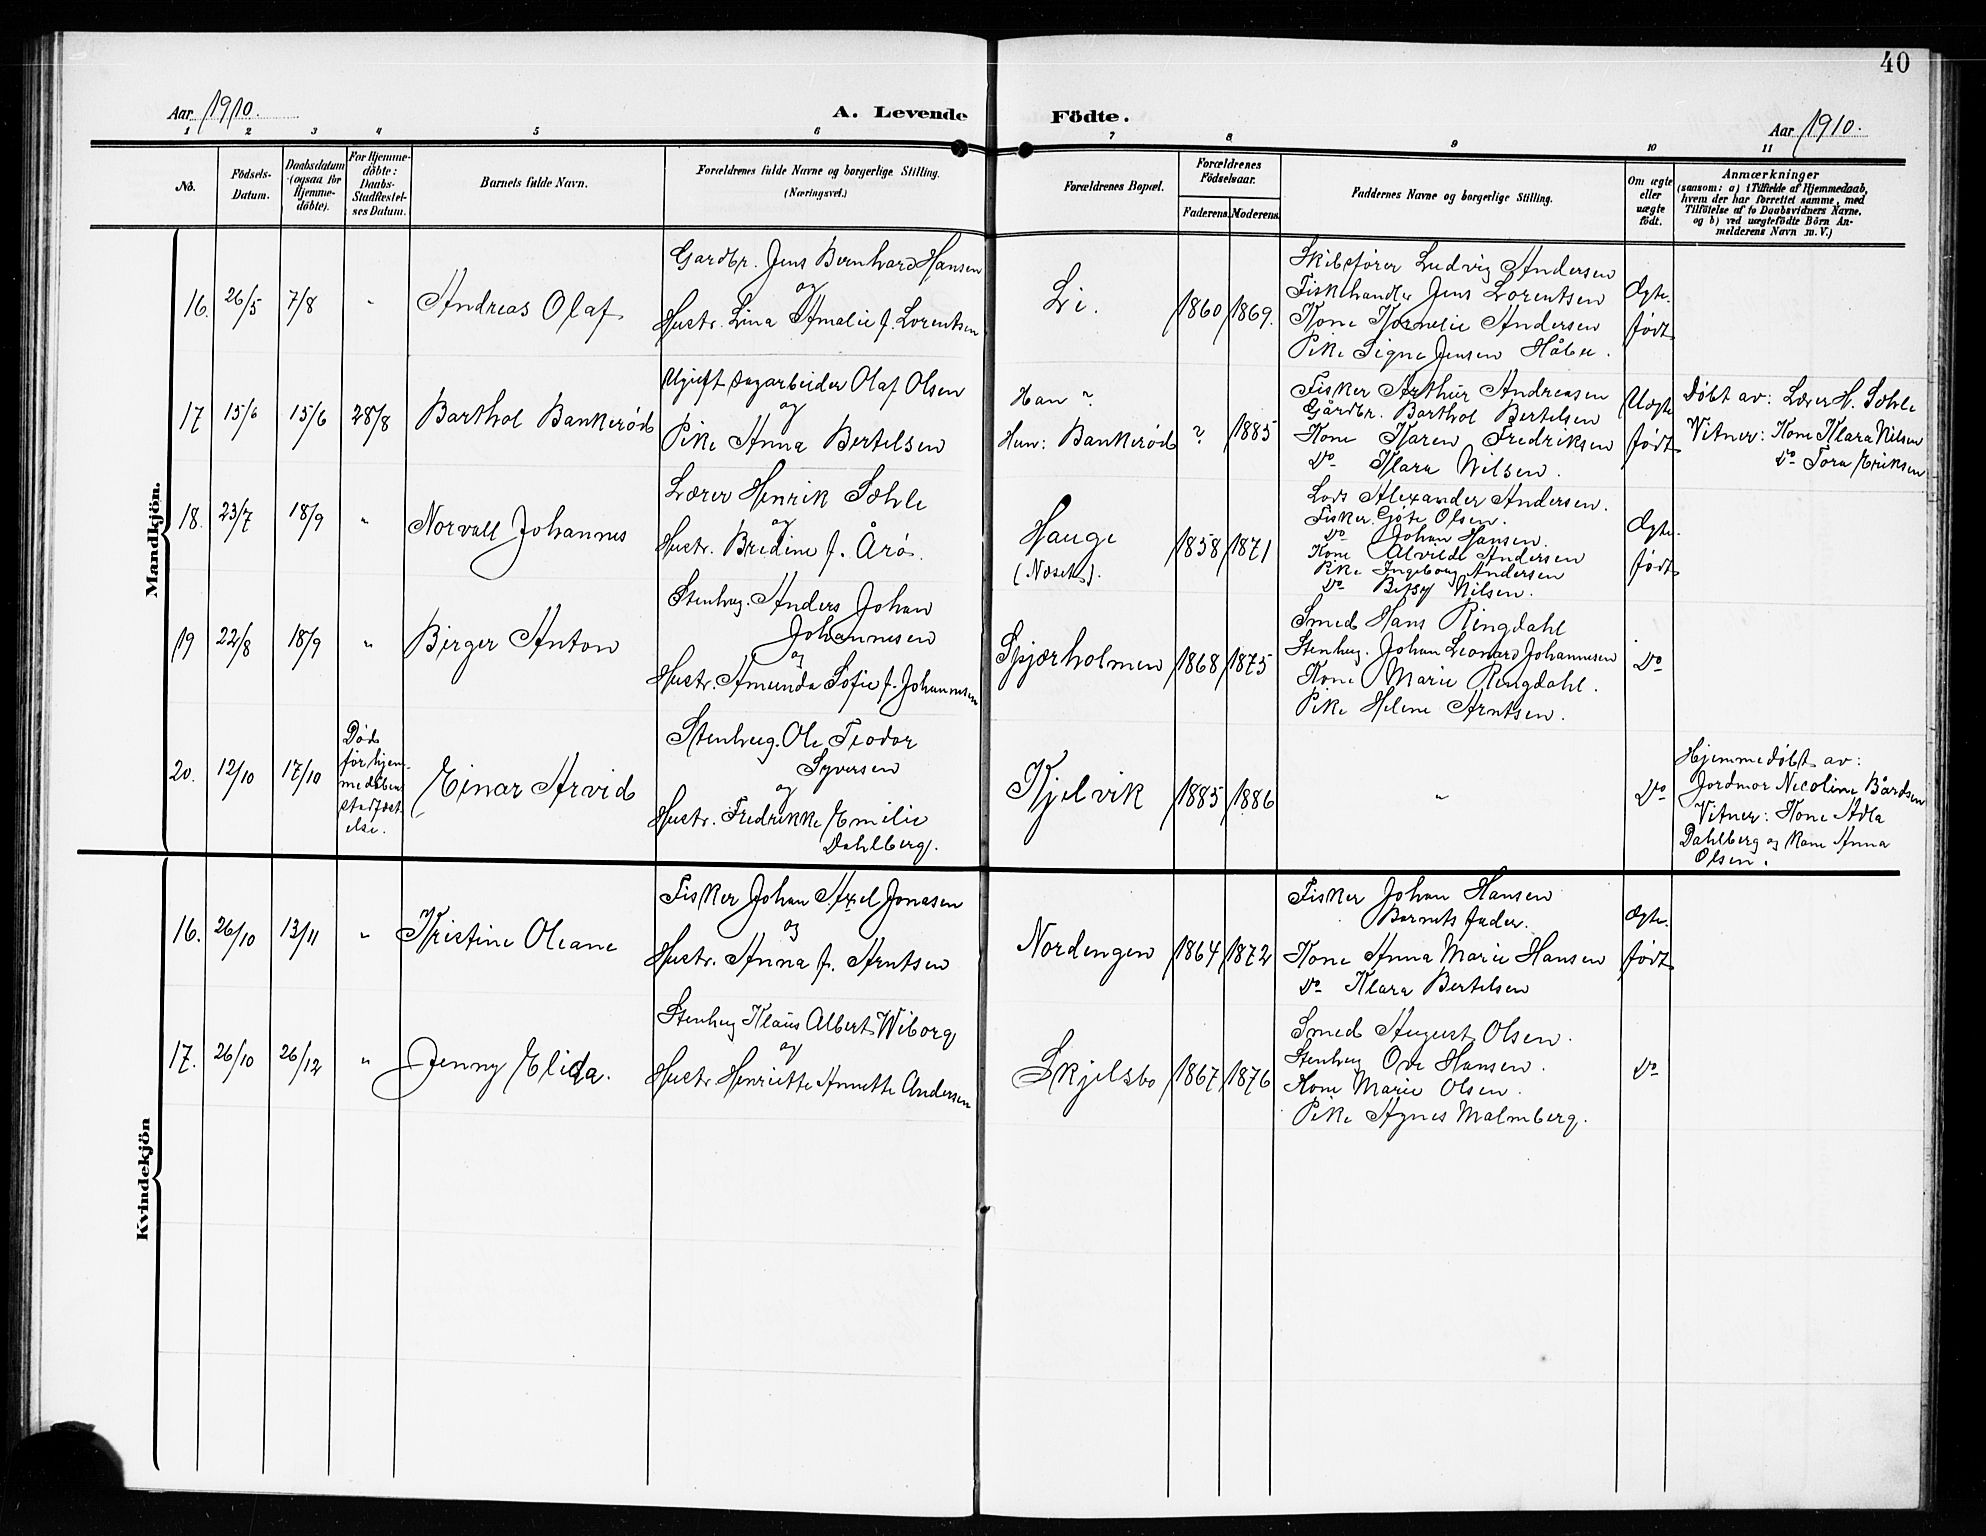 40
Aar 1910.
A. Levende Födte.
Aar 1910.
1 2 3 4 5 6 7 8 9 10 11
No.
Födsels-
Datum.
Daabsdatum
(ogsaa for
Hjemme-
döbte).
For Hjemme-
döbte:
Daabs-
Stadfæstel-
ses Datum.
Barnets fulde Navn.
Forældrenes fulde Navne og borgerlige Stilling.
(Næringsvei.)
Forældrenes Bopæl.
Forældrenes
Födselsaar.
Faderens.
Moderens.
Faddernes Navne og borgerlige Stilling.
Om ægte
eller
uægte
födt.
Anmærkninger
(saasom: a) i Tilfælde af Hjemmedaab,
hvem der har forrettet samme, med
Tilföielse af to Daabsvidners Navne,
og b) ved uægtefödte Börn An-
melderens Navn m. V.)
Mandkjön.
16. 26/5 7/8 "
Andreas Olaf
Gardbr. Jens Bernhard Hansen
og
Hustr. Lina Amalie f. Lorentsen
Li.
1860 1869.
Skibsfører Ludvig Andersen
Fiskehandler Jens Lorentsen
Kone Kornelie Andersen
Pike Signe Jensen Håbu.
Ægte.
født
17 15/6 15/6 28/8
Barthol Bankerød
Ugift Dagarbeider Olaf Olsen
og
Pike Anna Bertelsen
Han ?
Hun: Bankerød
? 1885
Fisker Arthur Andreasen
Gårdbr. Barthol Bertelsen
Kone Karen Fredriksen
Do Klara Nilsen.
Uægte
født
Døbt av: Lærer H. Sæhle
Vitner: Kone Klara Nilsen
Do Tora Eriksen
18. 23/7 18/9 "
Norvall Johannes
Lærer Henrik Sæhle
og
Hustr. Bredine f. Årø.
Hauge
(Næset).
1858 1871
Lods Alexander Andersen.
Fisker Gøte Olsen.
Do Johan Hansen.
Kone Alvilde Andersen
Pike Ingeborg Andersen
Do Betsy Nilsen.
Ægte.
født
19 22/8 18/9 "
Birger Anton
Stenhug. Anders Johan
Johannesen
og
Hustr. Amunda Sofie f. Johannesen
Spjærholmen
1868 1875
Smed Hans Ringdahl
Stenhug. Johan Leonard Johannesen
Kone Marie Ringdahl.
Pike Helene Arntsen.
Do
20. 12/10 17/10
Død
før hjem-
medåben
stadfæst-
else.
Einar Arvid
Stenhug. Ole Teodor
Syversen
og
Hustr. Fredrikke Emilie
Dahlberg.
Kjelvik
1885 1886
"
Do
Hjemmedøbt av:
Jordmor Nicoline Bårdsen
Vitner: Kone Adla
Dahlberg og Kone Anna
Olsen.
Kvindekjön
16. 26/10 13/11 "
Kristine Oleane
Fisker Johan Axel Jonasen
og
Hustr. Anna f. Arntsen
Nordengen
1864 1872
Fisker Johan Hansen
Barnets fader.
Kone Anna Marie Hansen
Do Klara Bertelsen
Ægte.
født
17. 26/10 26/12 "
Jenny Elida.
Stenhug Klaus Albert Wiborg
og
Hustr Henriette Annette Andersen
Skjelsbo
1867 1876
Smed August Olsen.
Stenhug Ove Hansen.
Kone Marie Olsen.
Pike Agnes Malmberg.
Do